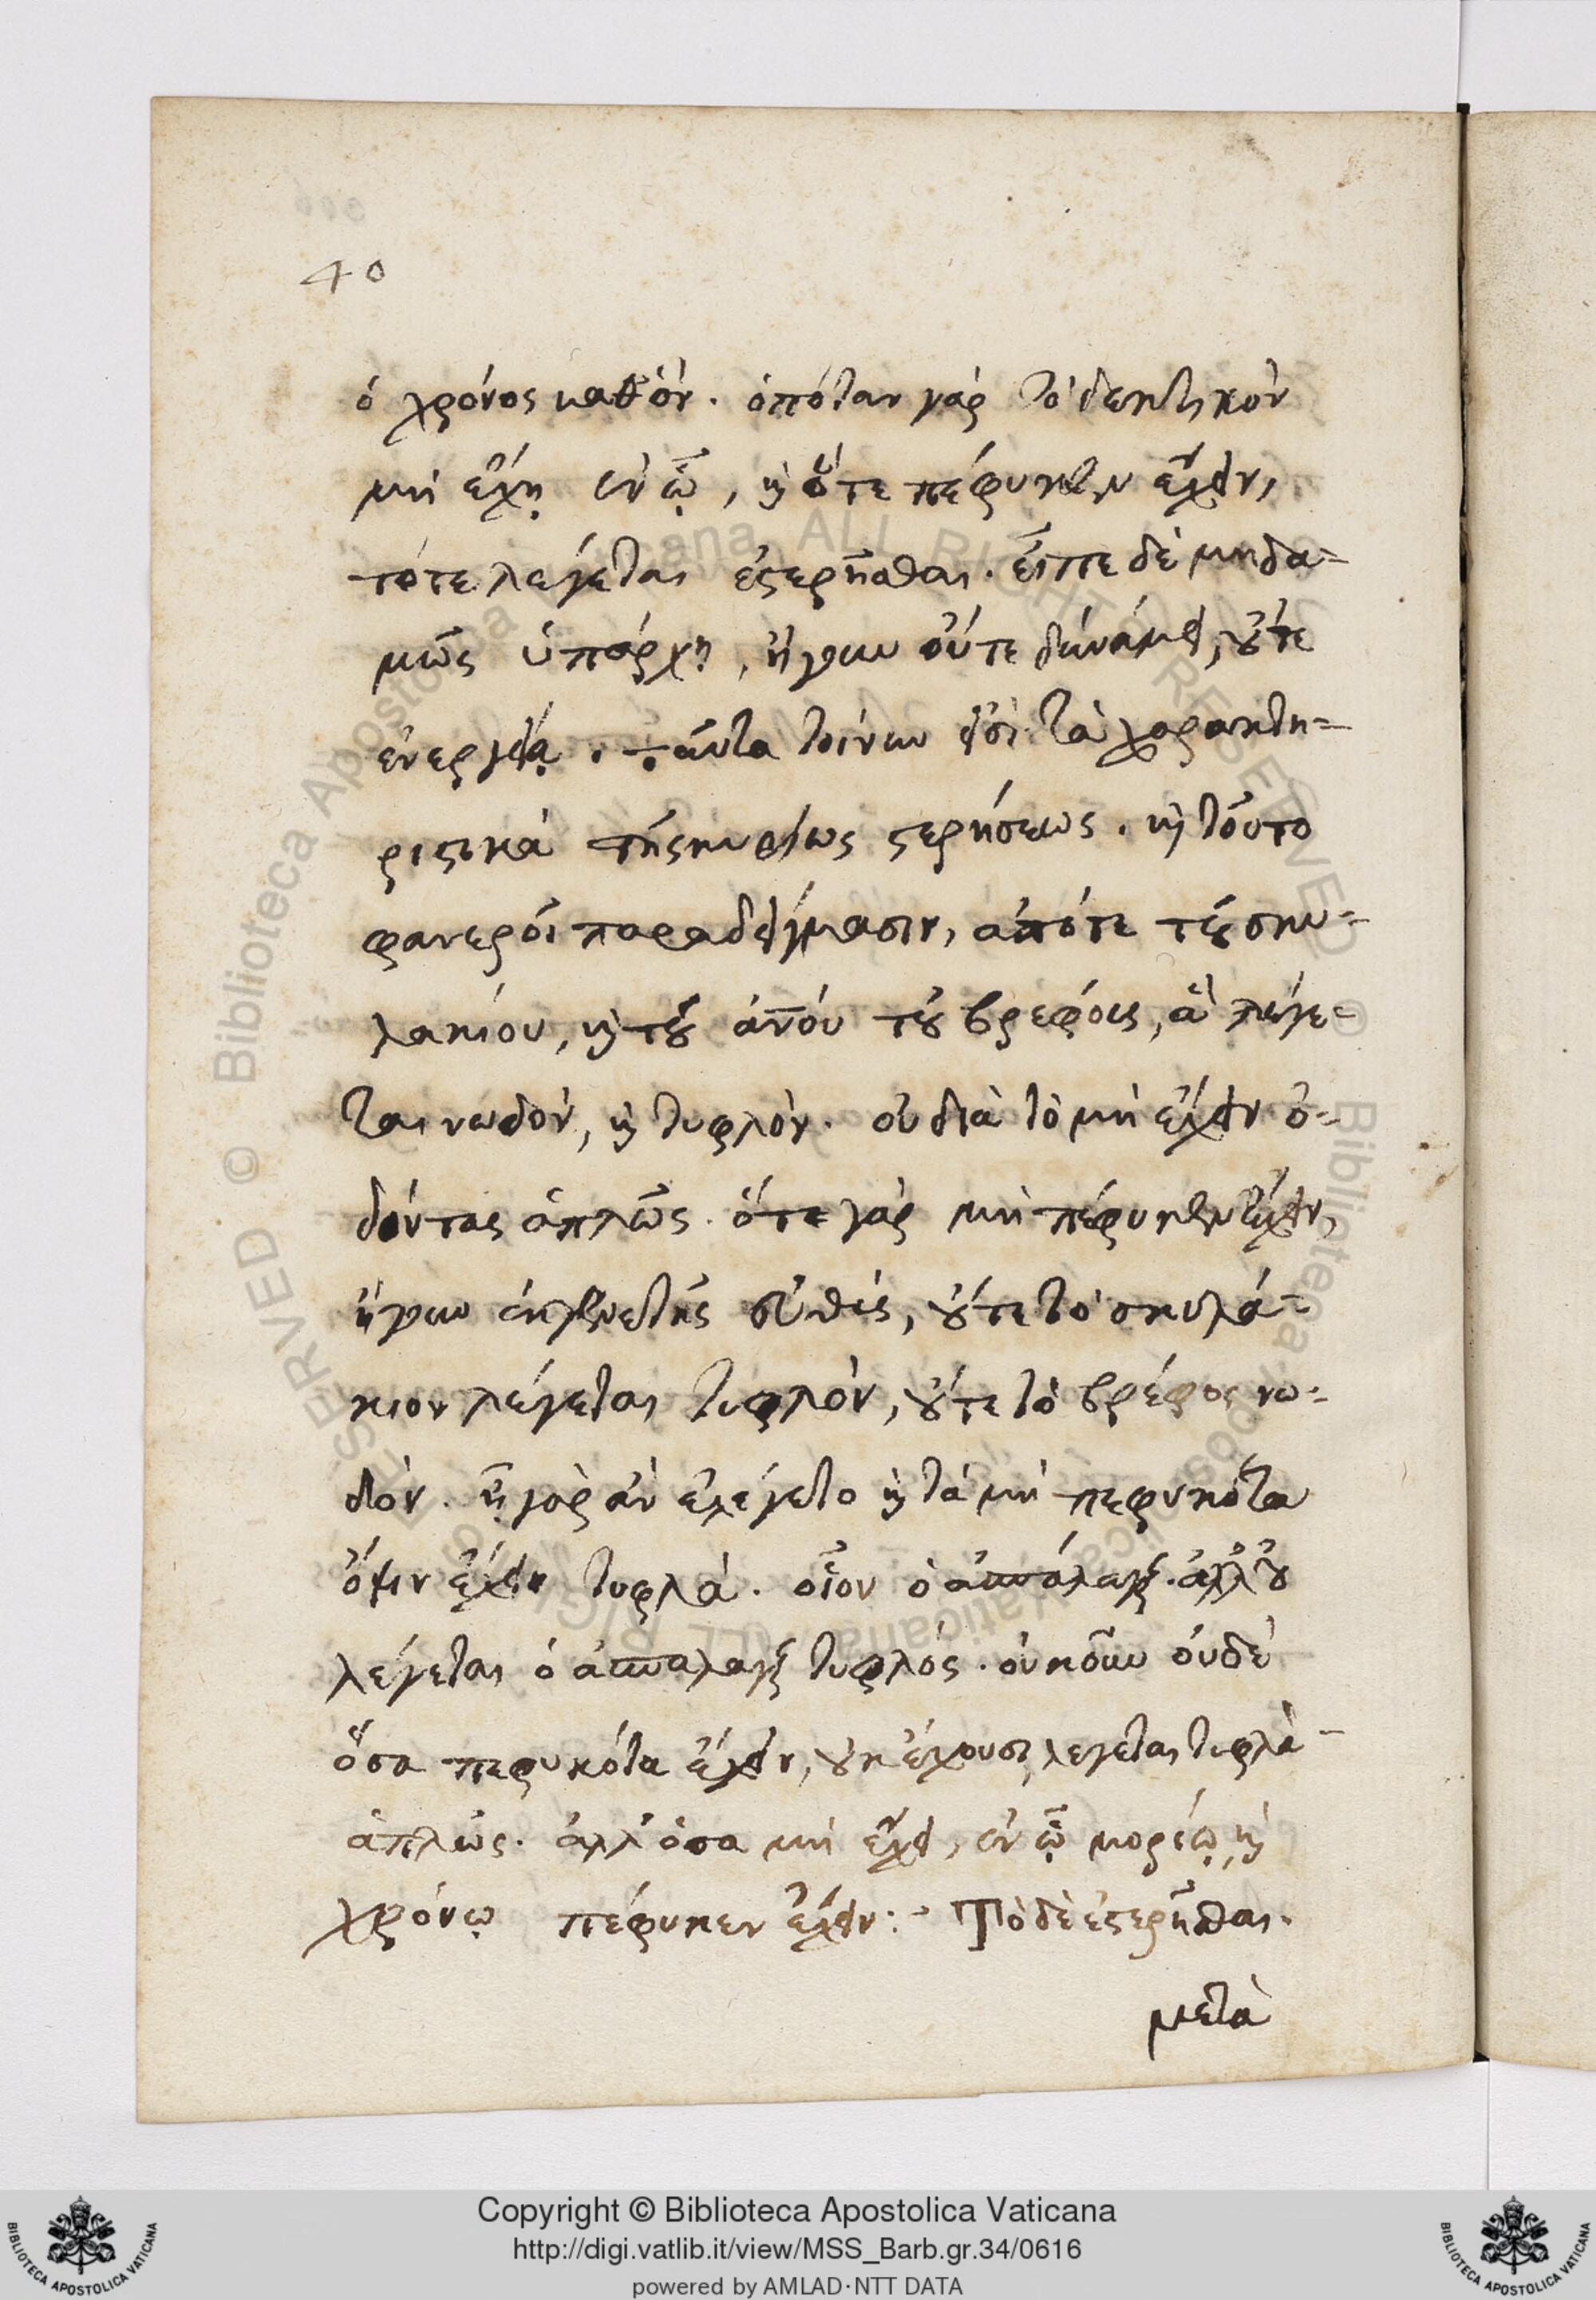 40
ὁ χρόνος καθ' ὃν. ὁπόταν γὰρ τὸ δεκτικὸν
μὴ ἔχῃ ἐν ᾧ, καὶ ὅτε πέφυκεν ἔχειν,
τότε λέγεται ἐστερῆσθαι. εἶπε δὲ μηδα-
μῶς ὑπάρχῃ, ἤγουν οὔτε δυνάμει, οὔτε
ἐνεργείᾳ. ταῦτα τοίνυν εἰσὶ τὰ χαρακτη-
ριστικὰ τῆς κυρίως στερήσεως. καὶ τοῦτο
φανεροῖ παραδείγμασιν, ἀπό τε τοῦ σκυ-
λακίου, καὶ τοῦ ἀνου τοῦ βρέφους, ἃ λέγε-
ται νωδὸν, καὶ τυφλὸν. οὐ διὰ τὸ μὴ ἔχειν ὀ-
δόντας ἁπλῶς. ὅτε γὰρ μὴ πέφυκεν ἔχειν,
ἤγουν ἐκ γενετῆς εὐθὺς, οὔτε τὸ σκυλά-
κιον λέγεται τυφλὸν, οὔτε τὸ βρέφος νω-
δὸν. ἦ γὰρ ἂν ἐλέγετο καὶ τὰ μὴ πεφυκότα
ὄψιν ἔχειν τυφλὰ. οἷον ὁ ἀσπάλαξ. ἀλλ' οὐ
λέγεται ὁ ἀσπάλαξ τυφλός. οὐκοῦν οὐδὲ
ὅσα πεφυκότα ἔχειν, οὐκ ἔχουσι, λέγεται τυφλὰ
ἁπλῶς. ἀλλ' ὅσα μὴ ἔχει, ἐν ᾧ μορίῳ, καὶ
χρόνῳ πέφυκεν ἔχειν:- Τὸ δὲ ἐστερῆσθαι.
μετὰ
Copyright © Biblioteca Apostolica Vaticana
http://digi.vatlib.it/view/MSS_Barb.gr.34/0616
powered by AMLAD·NTT DATA